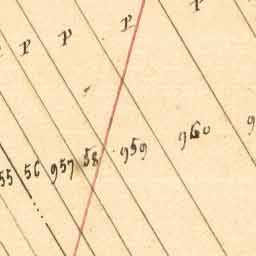 P P P P
55 56 957 58 959 960 9